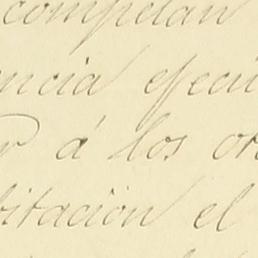 compelan
encia efecu
r á los or
bitación el